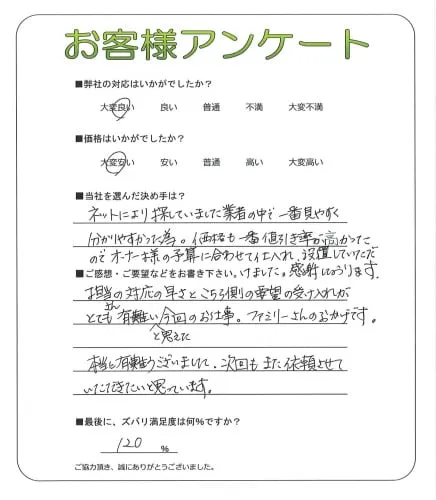 お客様アンケート
■弊社の対応はいかがでしたか？
大変良い 良い 普通 不満 大変不満
■価格はいかがでしたか？
大変安い 安い 普通 高い 大変高い
■当社を選んだ決め手は？
ネットにより探していました業者の中で一番見やすく
分かりやすかった為。価格も一番値引き率が高かった
のでオーナー様の予算に合わせて仕入れ、設置していただ
■ご感想・ご要望などをお書き下さい。
いけました。感謝しております。
担当さんの対応の早さとこちら側の要望の受け入れが
とても有難い今回のお仕事。ファミリーさんのおかげです。
と思えた
本当に有難うございまして、次回もまた依頼させて
いただきたいと思っています。
■最後に、ズバリ満足度は何％ですか？
120 ％
ご協力頂き、誠にありがとうございました。